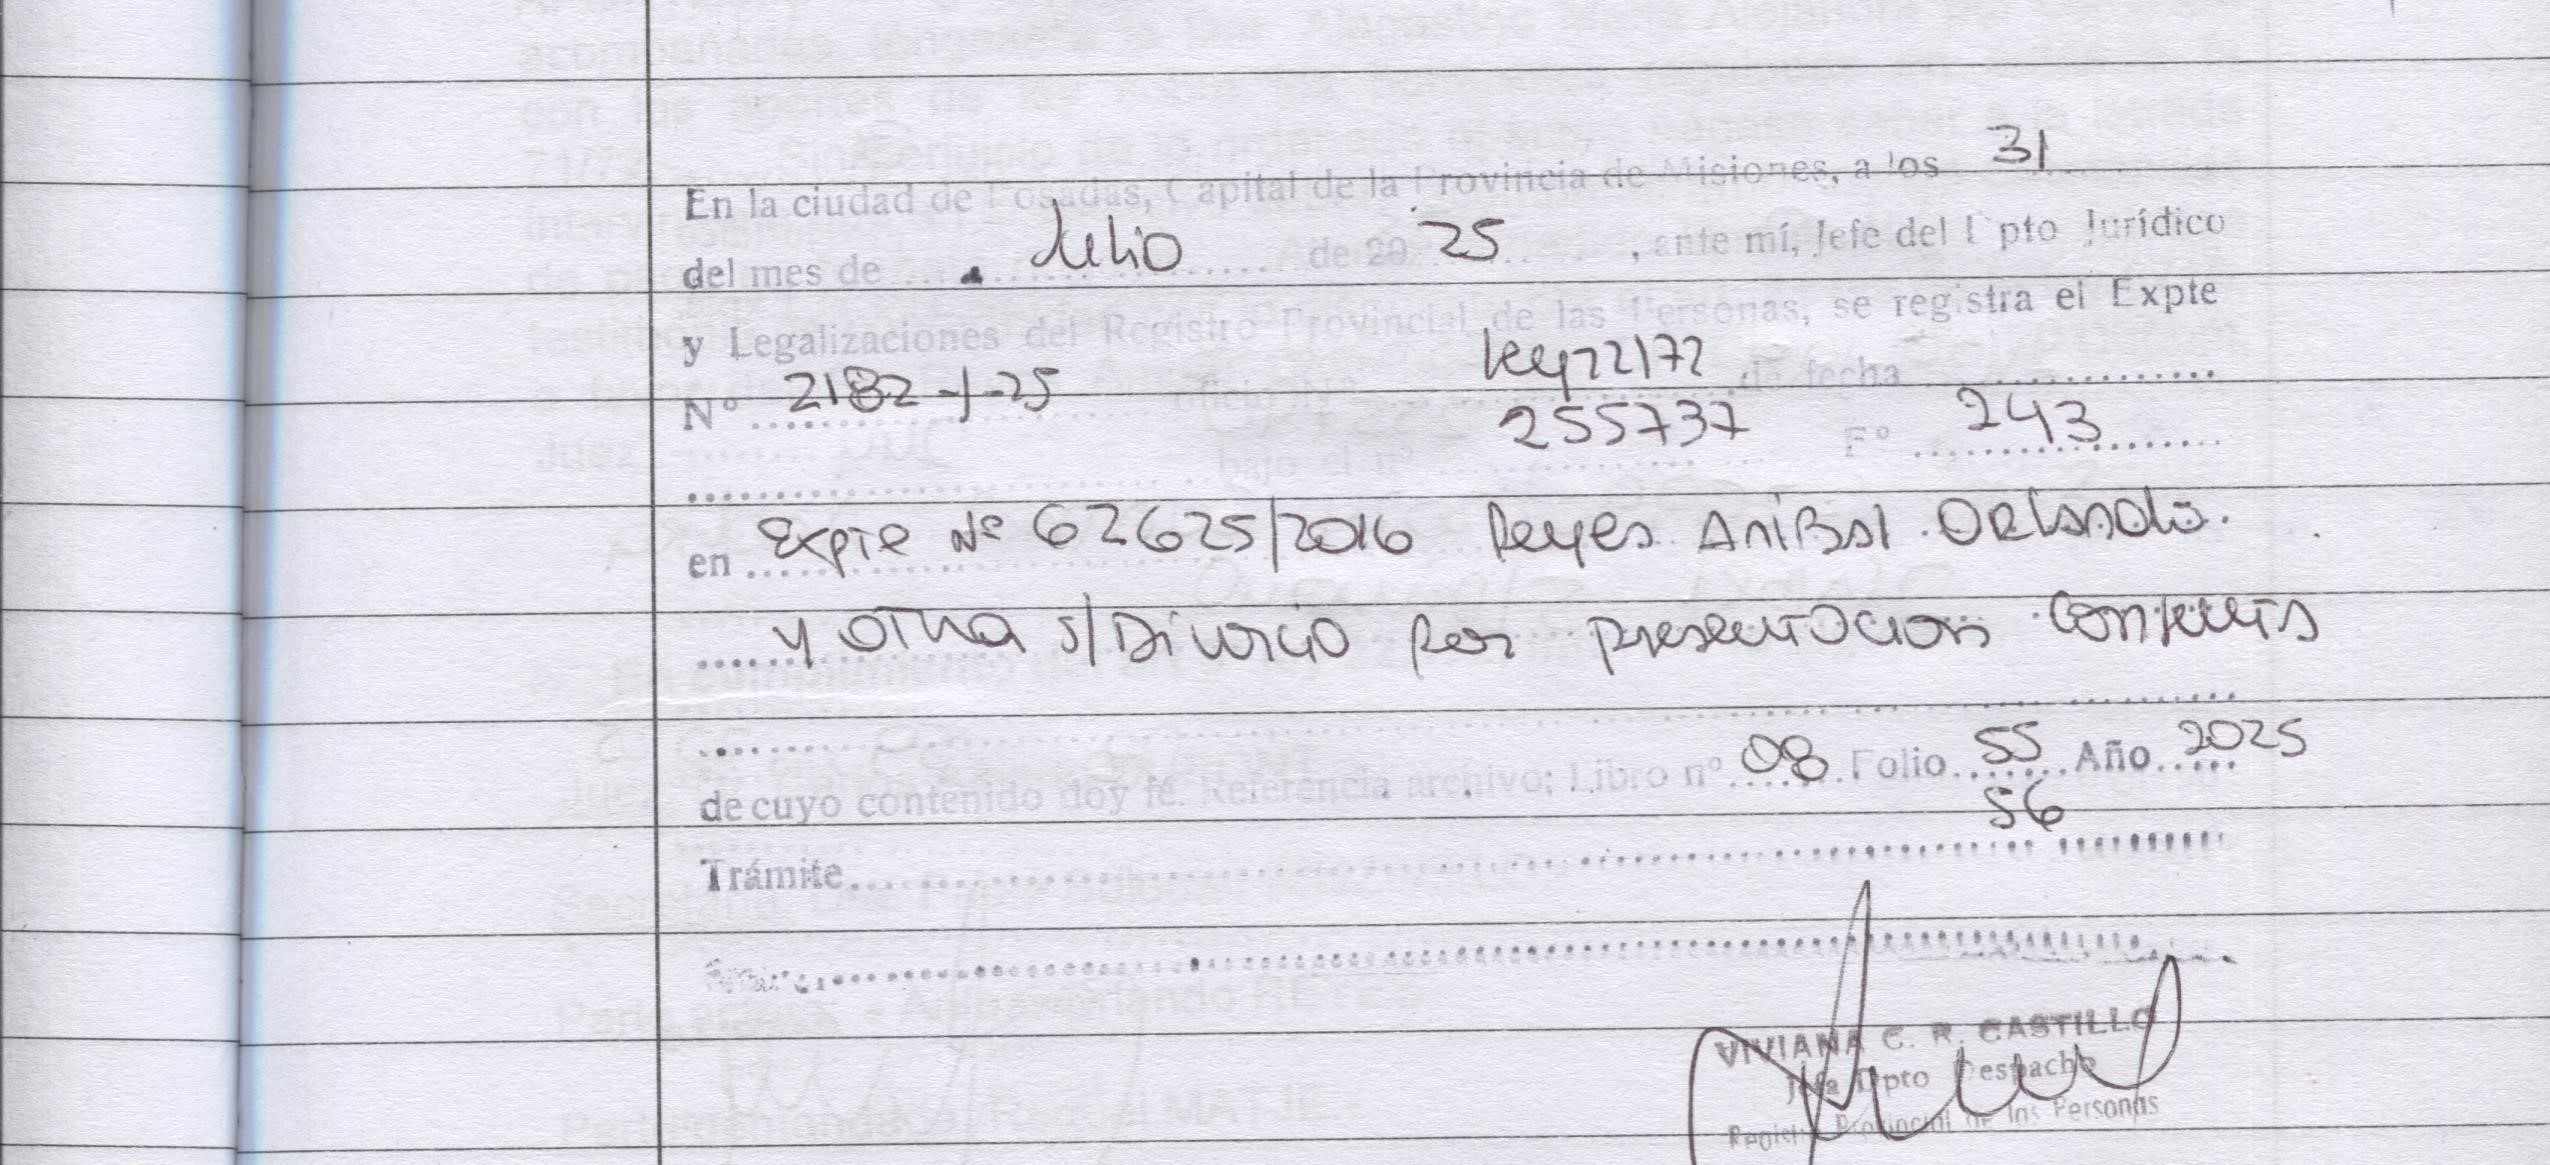 En la ciudad de Posadas, Capital de la Provincia de Misiones, a los 31
del mes de Julio de 20 25, ante mí, Jefe del Dpto Jurídico
y Legalizaciones del Registro Provincial de las Personas, se registra el Expte
N° 2182-J-25 oficio N° Ley 22172 de fecha
bajo el n° 255737 F° 243
en Expte Nº 62625/2016 Reyes Aníbal Orlando
y otra s/Divorcio por presentacion Conjunta
de cuyo contenido doy fe. Referencia archivo: Libro nº 08 Folio 55 Año 2025
56
Trámite
VIVIANA C. R. CASTILLO
Jefa Dpto Despacho
Registro Provincial de las Personas